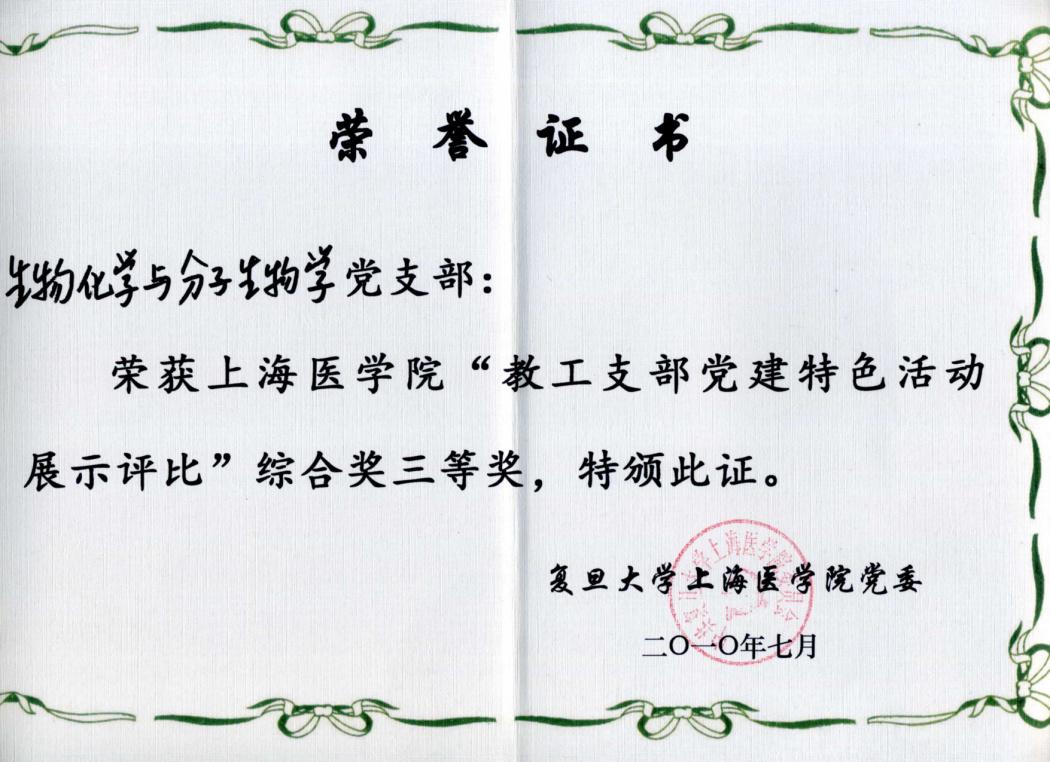 荣誉证书
生物化学与分子生物学党支部:
荣获上海医学院“教工支部党建特色活动
展示评比”综合奖三等奖，特颁此证。
复旦大学上海医学院党委
二〇一〇年七月